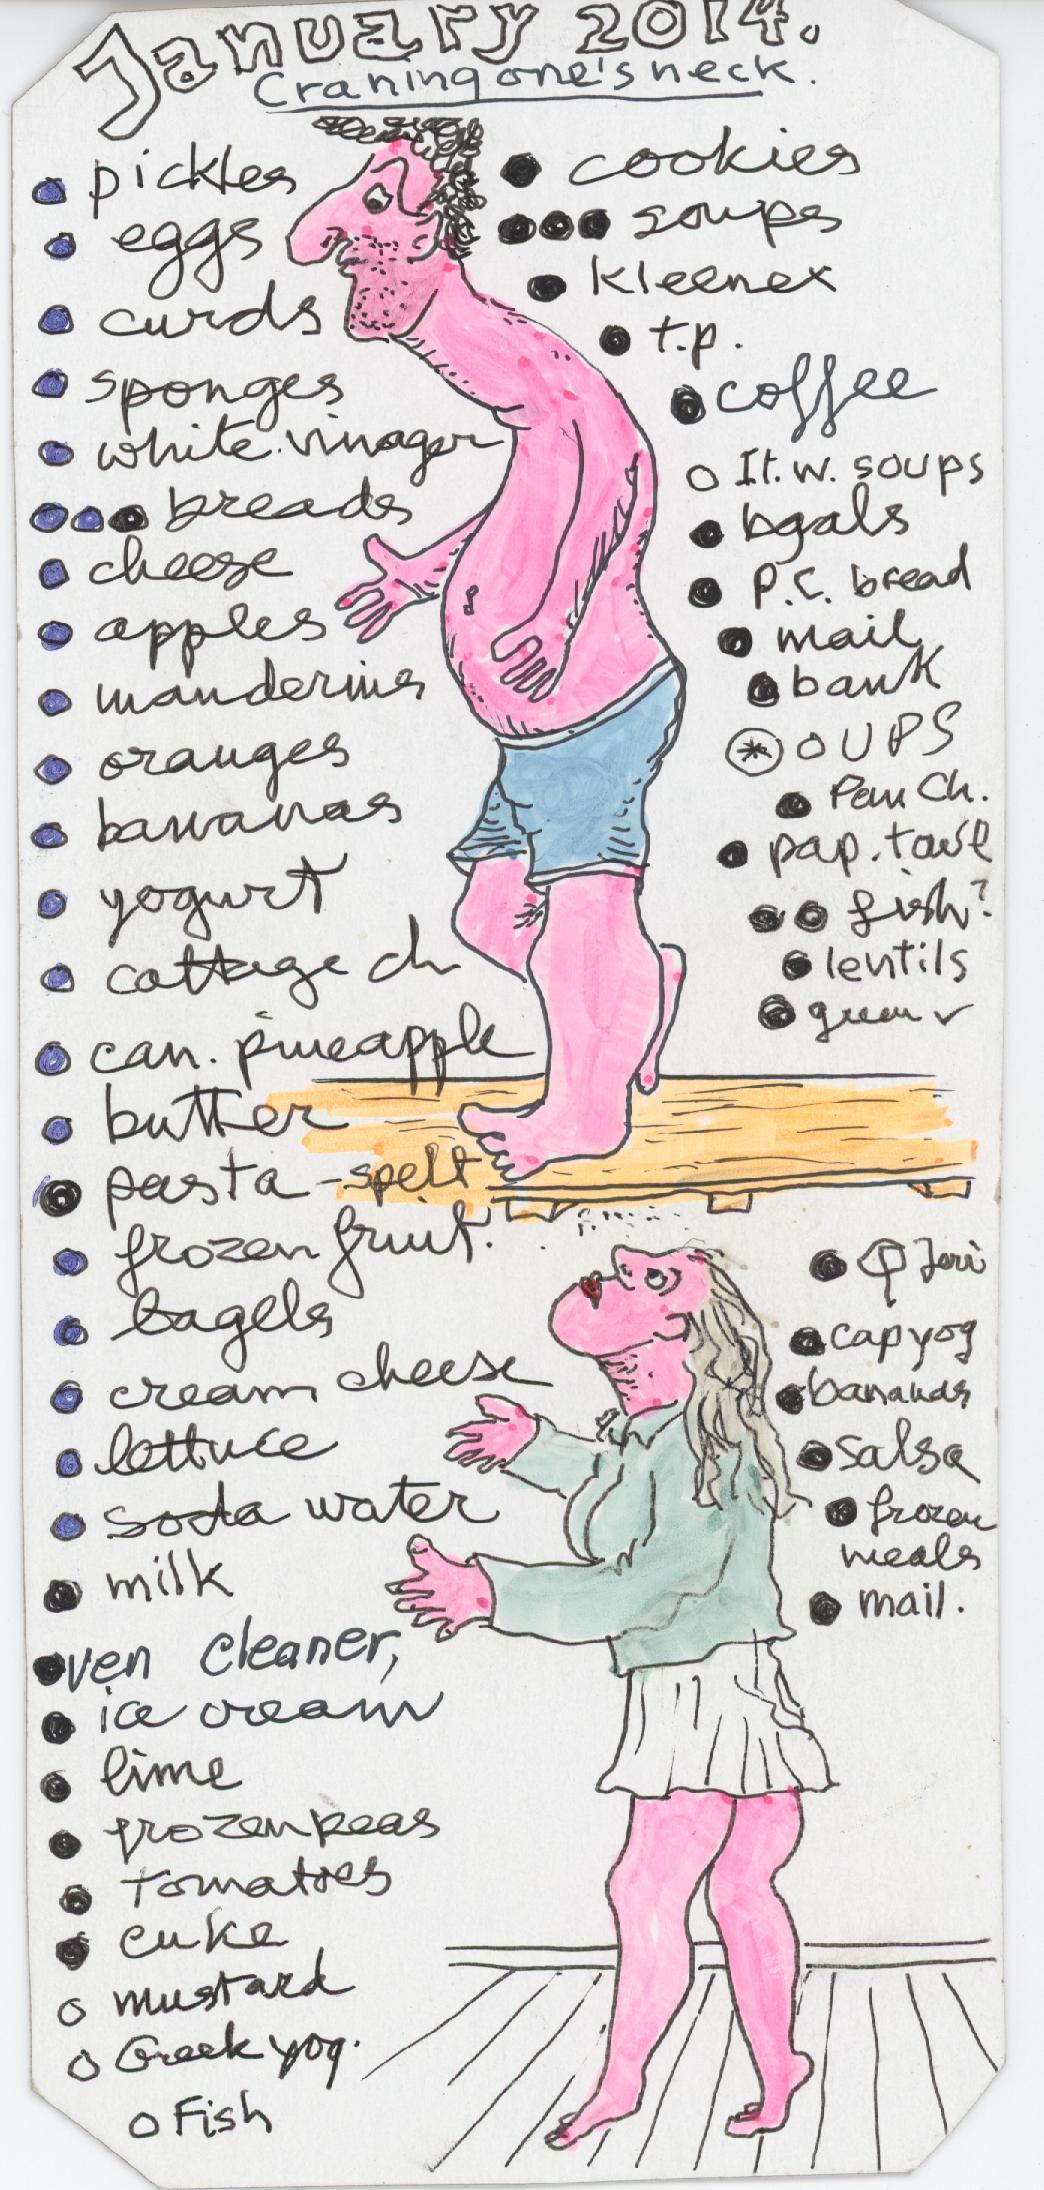 January 2014.
Craning one's neck.
pickles
eggs
curds
sponges
white vinager
breads
cheese
apples
manderins
oranges
bananas
yogurt
cottage ch
can. pineapple
butter
pasta - spelt
frozen fruit.
bagels
cream cheese
lettuce
soda water
milk
oven cleaner,
ice cream
lime
frozen peas
tomatoes
cuke
mustard
Greek yog.
Fish
cookies
soups
kleenex
t.p.
coffee
It. w. soups
bgals
P.C. bread
mail
bank
OUPS
Pan Ch.
pap. towl
fish?
lentils
green v
Jeri
cap yog
bananas
Salsa
frozen
meals
mail.